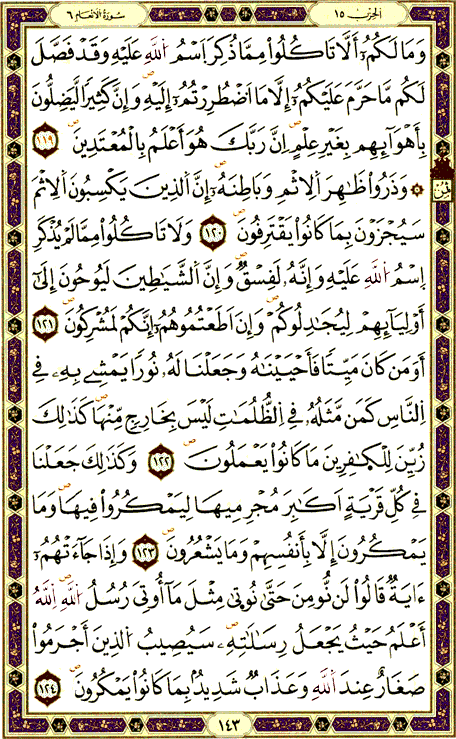 الحزب ١٥
سورة الأنعام ٦
وَمَا لَكُمُۥٓ أَلَّا تَاكُلُواْ مِمَّا ذُكِرَ اَسْمُ اُللَّهِ عَلَيْهِ وَقَدْ فَصَّلَ
لَكُم مَّا حَرَّمَ عَلَيْكُمُۥٓ إِلَّا مَا اَضْطُرِرْتُمُۥٓ إِلَيْهِ وَإِنَّ كَثِيراً لَّيَضِلُّونَ
بِأَهْوَآئِهِم بِغَيْرِ عِلْمٍ اِنَّ رَبَّكَ هُوَ أَعْلَمُ بِالْمُعْتَدِينَ ١١٩
۞ وَذَرُواْ ظَٰهِرَ اَلِاثْمِ وَبَاطِنَهُۥٓ إِنَّ اَلذِينَ يَكْسِبُونَ اَلِاثْمَ
سَيُجْزَوْنَ بِمَا كَانُواْ يَقْتَرِفُونَ ١٢٠ وَلَا تَاكُلُواْ مِمَّا لَمْ يُذْكَرِ
اِسْمُ اُللَّهِ عَلَيْهِ وَإِنَّهُۥ لَفِسْقٌ وَإِنَّ اَلشَّيَٰطِينَ لَيُوحُونَ إِلَىٰٓ
أَوْلِيَآئِهِمْ لِيُجَٰدِلُوكُمْ وَإِنَ اَطَعْتُمُوهُمُۥٓ إِنَّكُمْ لَمُشْرِكُونَ ١٢١
أَوَمَن كَانَ مَيِّتاً فَأَحْيَيْنَٰهُ وَجَعَلْنَا لَهُۥ نُوراً يَمْشِے بِهِۦ فِے
اِلنَّاسِ كَمَن مَّثَلُهُۥ فِے اِلظُّلُمَٰتِ لَيْسَ بِخَارِجٍ مِّنْهَا كَذَٰلِكَ
زُيِّنَ لِلْكَٰفِرِينَ مَا كَانُواْ يَعْمَلُونَ ١٢٢ وَكَذَٰلِكَ جَعَلْنَا
فِے كُلِّ قَرْيَةٍ اَكَٰبِرَ مُجْرِمِيهَا لِيَمْكُرُواْ فِيهَا وَمَا
يَمْكُرُونَ إِلَّا بِأَنفُسِهِمْ وَمَا يَشْعُرُونَ ١٢٣ وَإِذَا جَآءَتْهُمُۥٓ
ءَايَةٌ قَالُواْ لَن نُّومِنَ حَتَّىٰ نُوتىٰ مِثْلَ مَآ أُوتِىَ رُسُلُ اُللَّهِ اِللَّهُ
أَعْلَمُ حَيْثُ يَجْعَلُ رِسَٰلَٰتِهِۦ سَيُصِيبُ اُلذِينَ أَجْرَمُواْ
صَغَارٌ عِندَ اَللَّهِ وَعَذَابٌ شَدِيدُۢ بِمَا كَانُواْ يَمْكُرُونَ ١٢٤
١٤٣